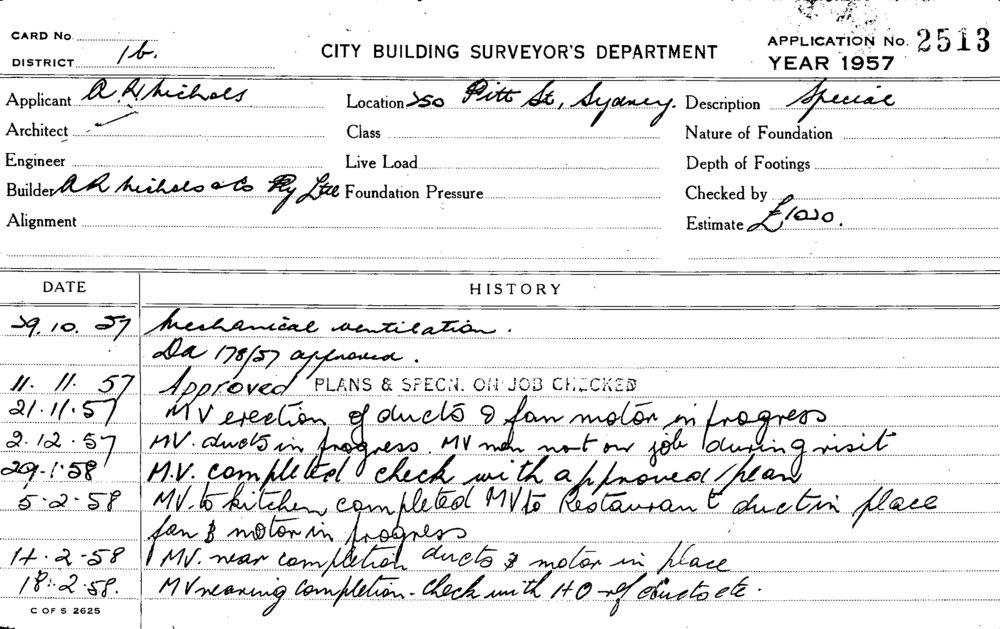 CARD No.
DISTRICT 1b.
CITY BUILDING SURVEYOR'S DEPARTMENT
APPLICATION No. 2513
YEAR 1957
Applicant A R Nichols Location 250 Pitt St, Sydney. Description Special
Architect Class Nature of Foundation
Engineer Live Load Depth of Footings
Builder A R Nichols & Co Pty Ltd Foundation Pressure Checked by
Alignment Estimate £1020.
DATE HISTORY
29.10.57 Mechanical ventilation.
Da 178/57 approved.
11.11.57 Approved PLANS & SPECN. ON JOB CHECKED
21.11.57 MV erection of ducts & fan motor in progress
2.12.57 MV. ducts in progress. MV men not on job during visit
29.1.58 M.V. completed check with approved plan
5.2.58 MV. to kitchen completed MV to Restaurant duct in place
fan & motor in progress
14.2.58 MV. near completion ducts & motor in place
18.2.58. MV nearing completion - check with HO - of ducts etc.
C OF S 2625